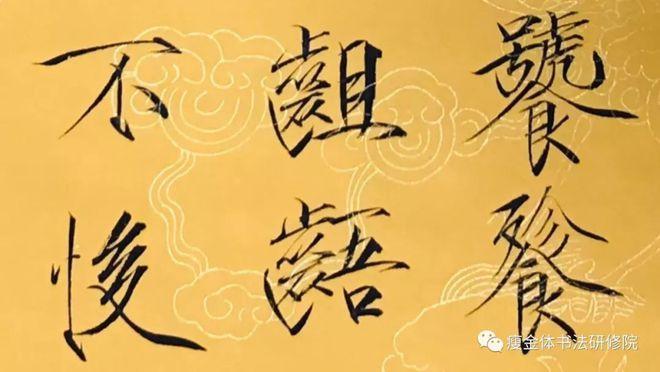 饕餮
齟齬
不悛
瘦金体书法研修院